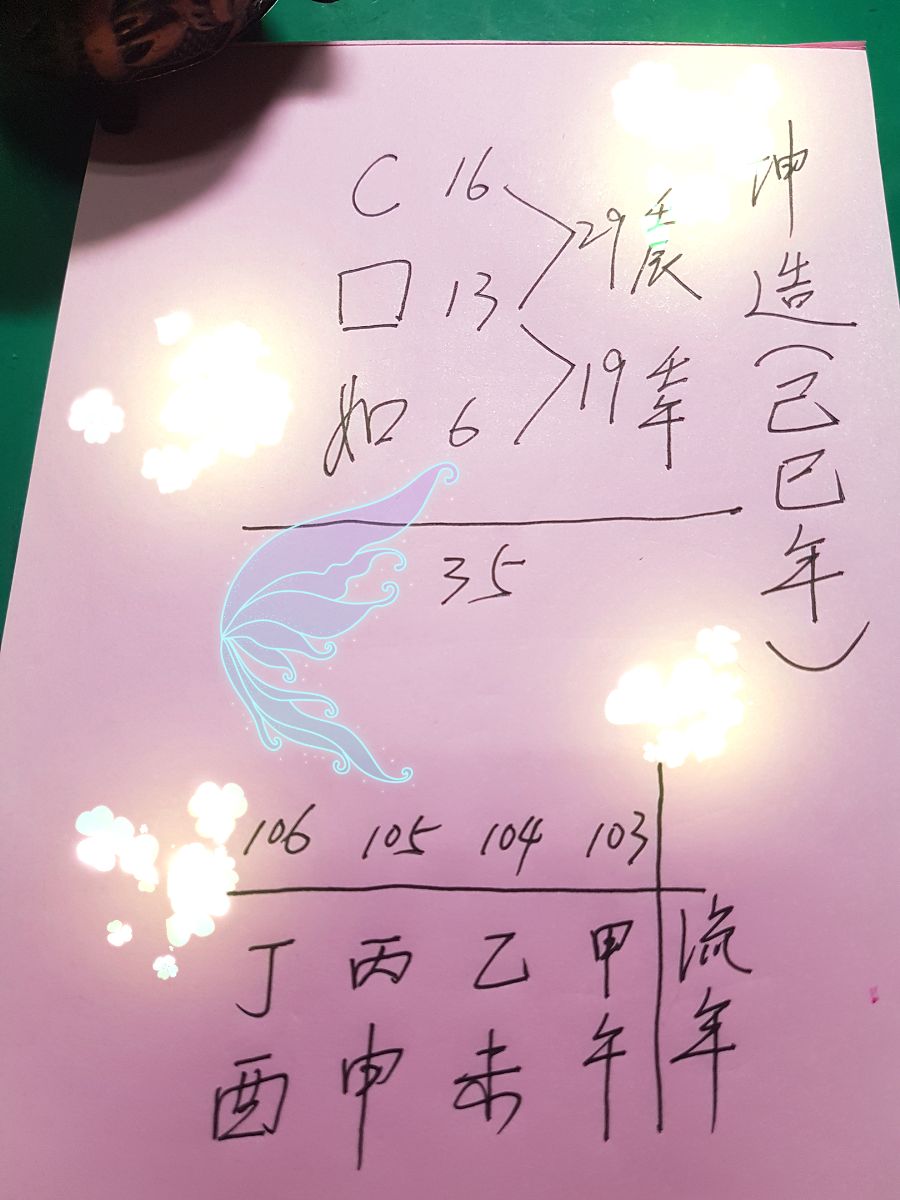 坤造(己巳年)
C 16
29 壬辰
口 13
19 壬午
如 6
35
106 105 104 103
丁酉 丙申 乙未 甲午 流年